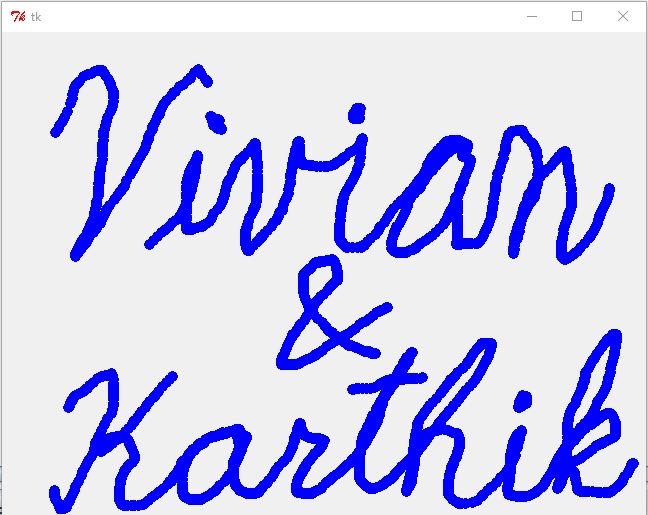 tk
Vivian
&
Karthik